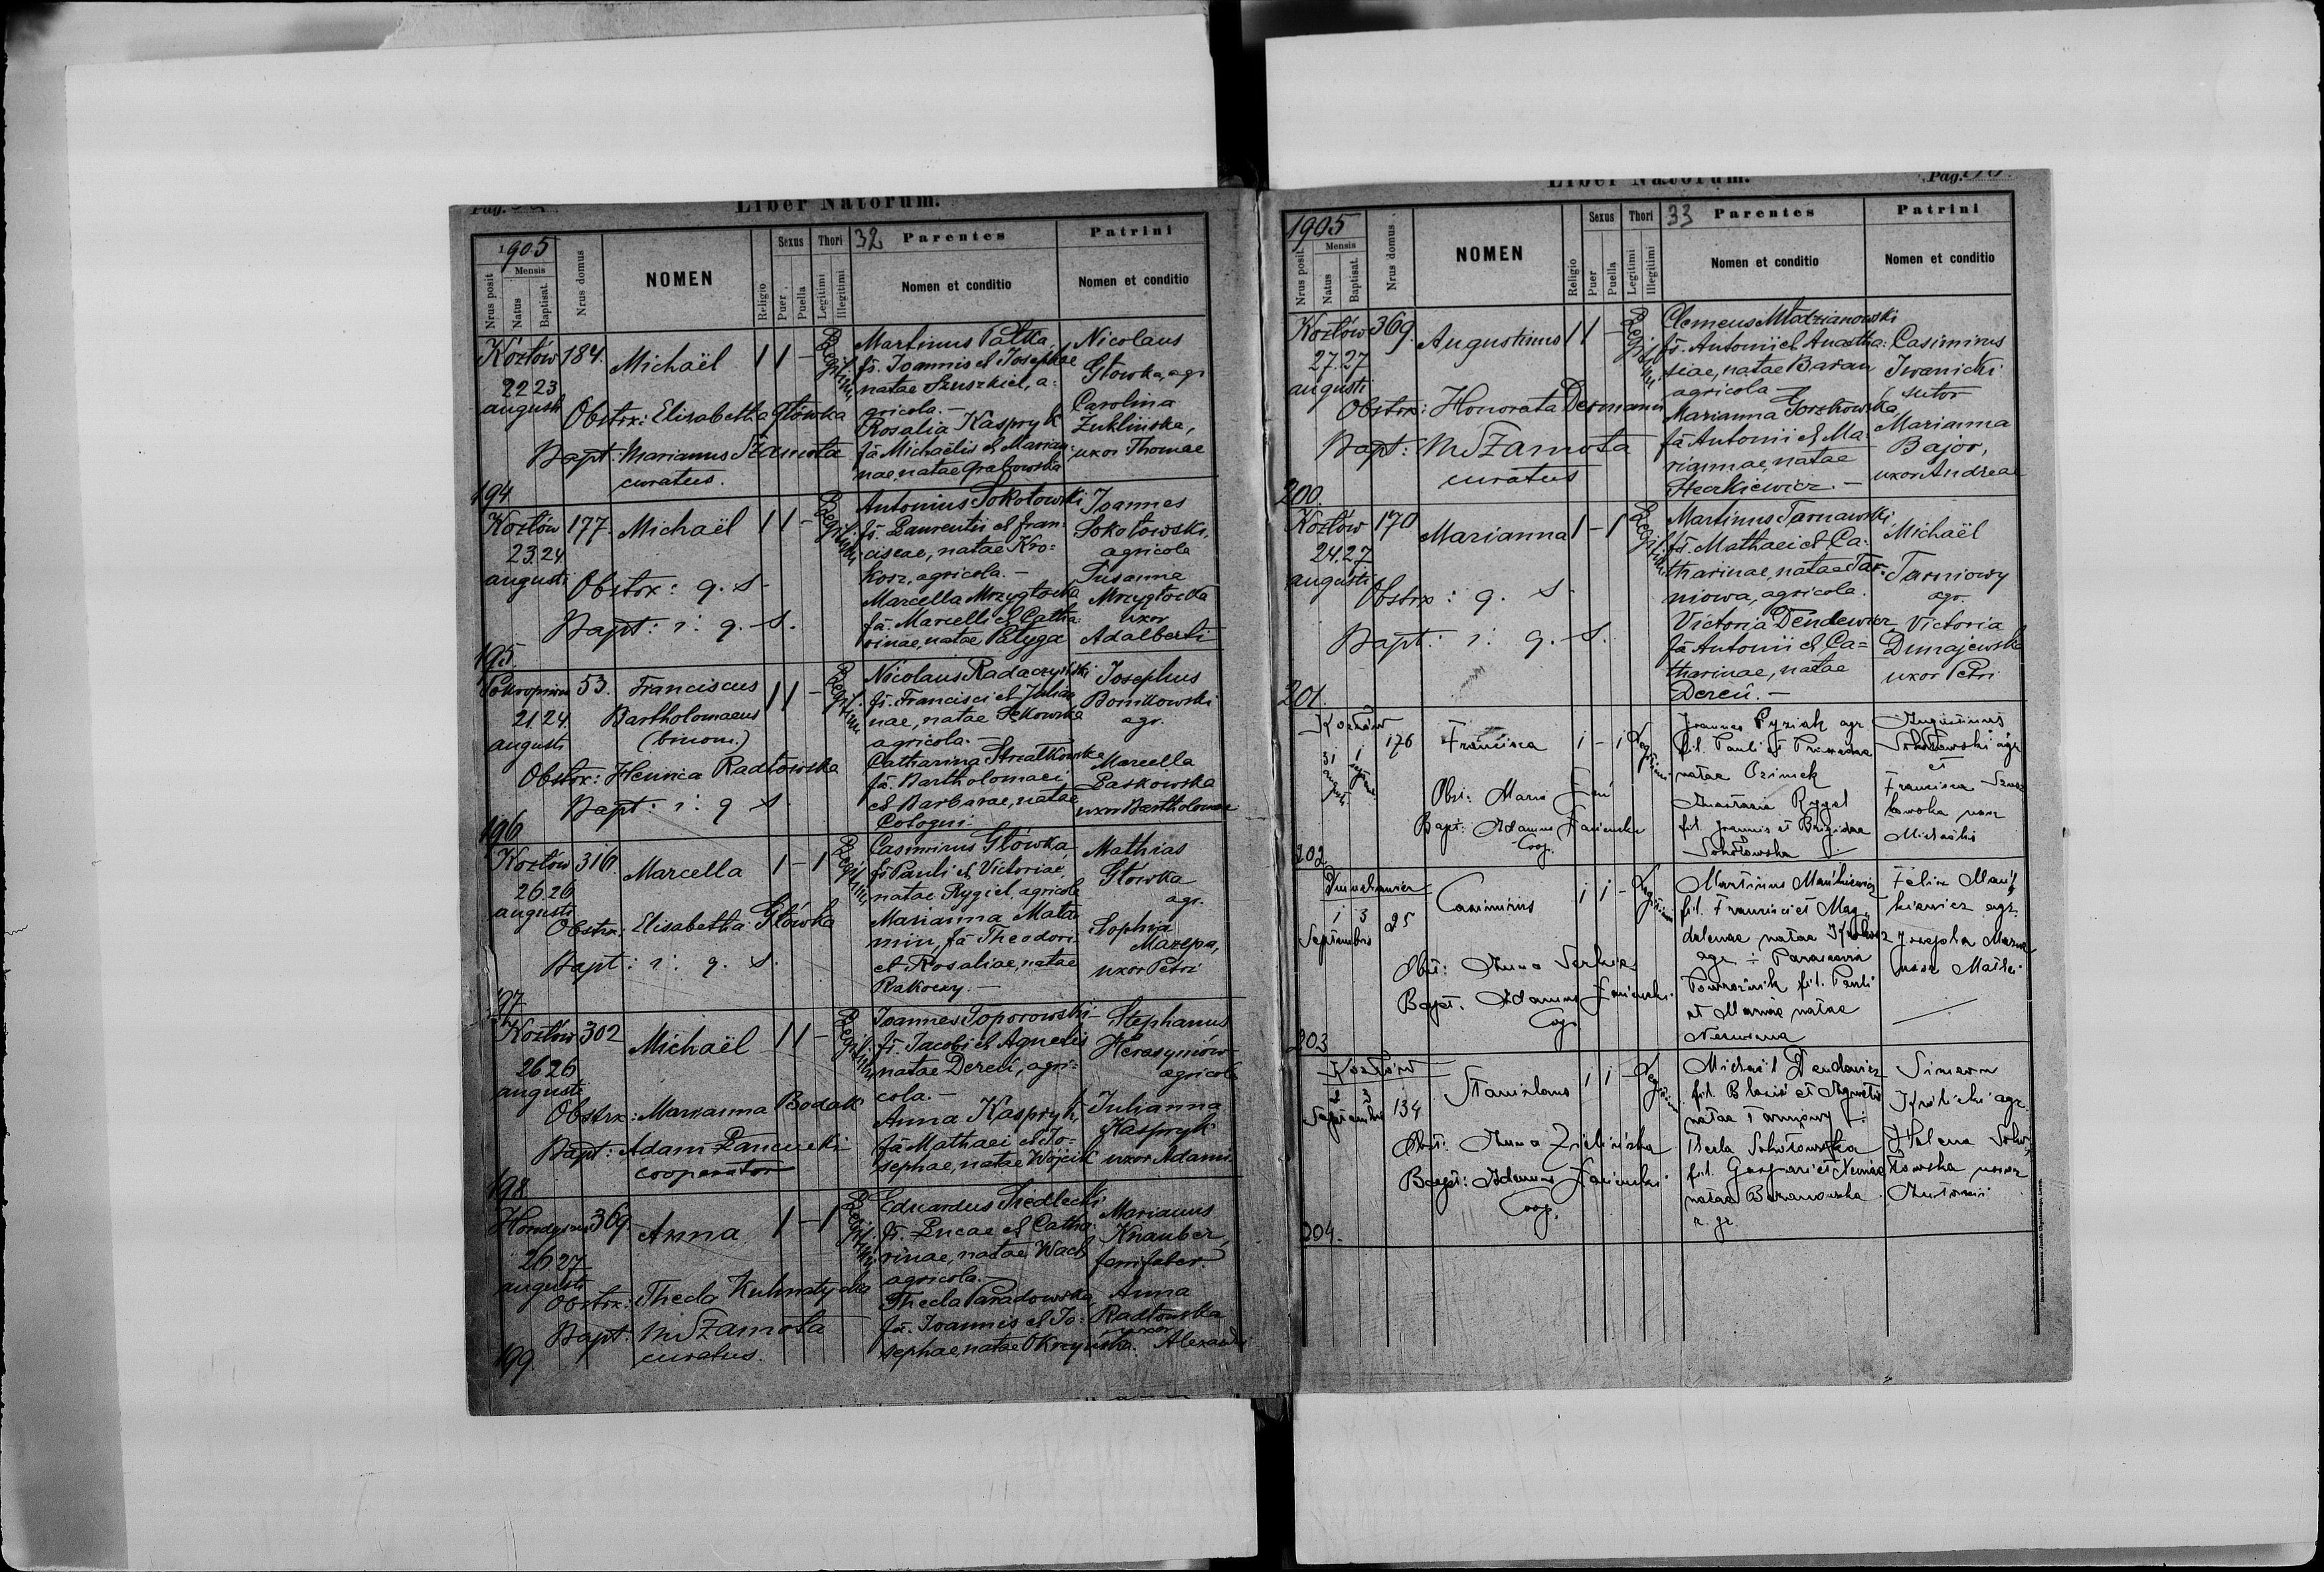 Liber Natorum.
1905
Nrus posit
Mensis
Natus
Baptisat.
Nrus domus
NOMEN
Religio
Sexus
Puer
Puella
Thori
Legitimi
Illegitimi
32 Parentes
Nomen et conditio
Patrini
Nomen et conditio
Kozłów 184. Michaël 1 1 -
Legitimi
22 23
augusti
Obstrx: Elisabetha Głowka
Bapt: Marianus Szamota
curatus.
194
Martinus Pałka,
fs. Joannis et Josephae
natae Szuszkiel, a-
gricola. -
Rosalia Kaspryk
fa Michaëlis et Marian-
nae, natae Grabowska
Nicolaus
Głowka, agr.
Carolina
Żuklińska,
uxor Thomae
Kozłów 177. Michaël 1 1 -
Legitimi
23.24
augusti
Obstrx: q. s.
Bapt: i: q. s.
195.
Antonius Sokołowski
fs. Laurentii et Fran-
ciscae, natae Kro=
kosz, agricola. -
Marcella Mrzygłocka
fa. Marcelli et Catha
rinae, natae Patyga
Joannes
Sokołowski,
agricola
Susanna
Mrzygłocka
uxor
Adalberti
53. Franciscus
Bartholomaeus
(binom.)
1 1 -
Legitimi
21.24
augusti
Obstrx: Henrica Radłowska
Bapt: i: q. s.
196
Nicolaus Radaczyński
fs. Francisci et Julian
nae, natae Sękowska
agricola. -
Catharina Strzałkowska
fa. Bartholomaei
et Barbarae, natae
Cologni.
Josephus
Bonikowski
agr.
Marcella
Laskowska
uxor Bartholomaei
Kozłów 316. Marcella 1 - 1
Legitimi
26 26
augusti
Obstrx: Elisabetha Głowka
Bapt: i: q. s.
197
Casimirus Głowka,
fs Pauli et Victoriae,
natae Rygiel, agricola
Marianna Mata
min, fa Theodori
et Rosaliae, natae
Rakoczy. -
Mathias
Głowka
agr.
Sophia
Mazepa,
uxor Petri
Kozłów 302 Michaël 1 1 -
Legitimi
26 26
augusti
Obstrx: Marianna Bodak
Bapt: Adam Łańcucki
cooperator
198
Joannes Toporowski
fs. Jacobi et Agnetis
natae Dereń, agri-
cola. -
Anna Kaspryk,
fa Mathaei et Jo=
sephae, natae Wójcik
Stephanus
Herasymów
agricola
Julianna
Kaspryk
uxor Adami.
369 Anna 1 - 1
Legitimi
26 27
augusti
Obstrx: Thecla
Bapt: M Szamota
curatus.
199.
Eduardus Siedlecki
fs. Lucae et Catha
rinae, natae Wach
agricola. -
Thecla Paradowska,
fa. Joannis et Jo=
sephae, natae Okrzyńska.
Marianus
Knauber,
ferrifaber.
Anna
Radłowska
uxor
Alexandri
Liber Natorum.
Pag.
1905
Nrus posit
Mensis
Natus
Baptisat.
Nrus domus.
NOMEN
Religio
Sexus
Puer
Puella
Thori
Legitimi
Illegitimi
33 Parentes
Nomen et conditio
Patrini
Nomen et conditio
Kozłów 369. Augustinus 1 1 -
Legitimi
27.27
augusti
Obstrx: Honorata Dermann
Bapt: M Szamota
curatus
200.
Clemens Młodzianowski
fs. Antonii et Anasta-
siae, natae Baran
agricola -
Marianna Gorzkowska,
fa Antonii et Ma-
riannae, natae
Heckiewicz. -
Casimirus
Iwanicki
sutor
Marianna
Bajor,
uxor Andreae
Kozłów 170 Marianna 1 - 1
Legitimi
24.27
augusti
Obstrx: q. s.
Bapt: i: q. s.
201.
Martinus Tarnawski,
fs. Mathaei et Ca-
tharinae, natae Tar-
niowa, agricola.
Victoria Dendewicz
fa Antonii et Ca=
tharinae, natae
Dereń. -
Michaël
Tarniowy
agr.
Victoria
Dunajewska
uxor Petri
Kozłów
31 1
176 Francisca 1 - 1
Legitimi
Obst: Maria
Bapt: Adamus Łańcucki
Coop.
202
Joannes Pyziak agr.
fil. Pauli et
natae Ozimek
Anastasia Rygiel
fil. Joannis et Brigidae
Sokołowska
Augustinus
Sokołowski agr.
et
Francisca
uxor
Michaëlis
1 3
Septembris 25
Casimirus 1 1 -
Legitimi
Obst: Anna
Bapt. Adamus Łańcucki
Coop
203
Martinus Mańkiewicz
fil. Francisci et Mag-
dalenae natae
agr. ÷ Parascevia
Powroźnik fil. Pauli
et Mariae natae
Felix Mań-
kiewicz agr.
Josepha
uxor Mathei
Kozłów
2 3
Septembris 134
Stanislaus 1 1 -
Legitimi
Obst: Anna Zielińska
Bapt: Adamus Łańcucki
Coop.
204.
Michaël Dendewicz
fil. Blasii et Agnetis
natae Tarniowy ÷
Thecla Sokołowska
fil. Gaspari et
natae Baranowska
r. gr.
Simeon
Krolicki agr.
Helena Soko-
łowska uxor
Antonii